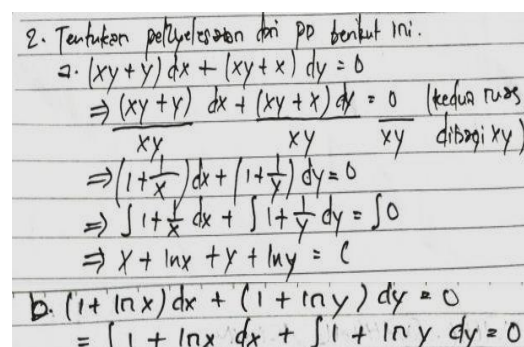 2. Tentukan penyelesaian dari PD berikut ini.
a. (xy+y) dx + (xy+x) dy = 0
⇒ (xy+y)/xy dx + (xy+x) dy/xy = 0/xy (kedua ruas dibagi xy)
⇒ (1+1/x) dx + (1+1/y) dy = 0
⇒ ∫ 1+1/x dx + ∫ 1+1/y dy = ∫0
⇒ x + lnx + y + lny = C
b. (1+ lnx) dx + (1 + ln y) dy = 0
= ∫ 1 + lnx dx + ∫ 1 + ln y dy = 0